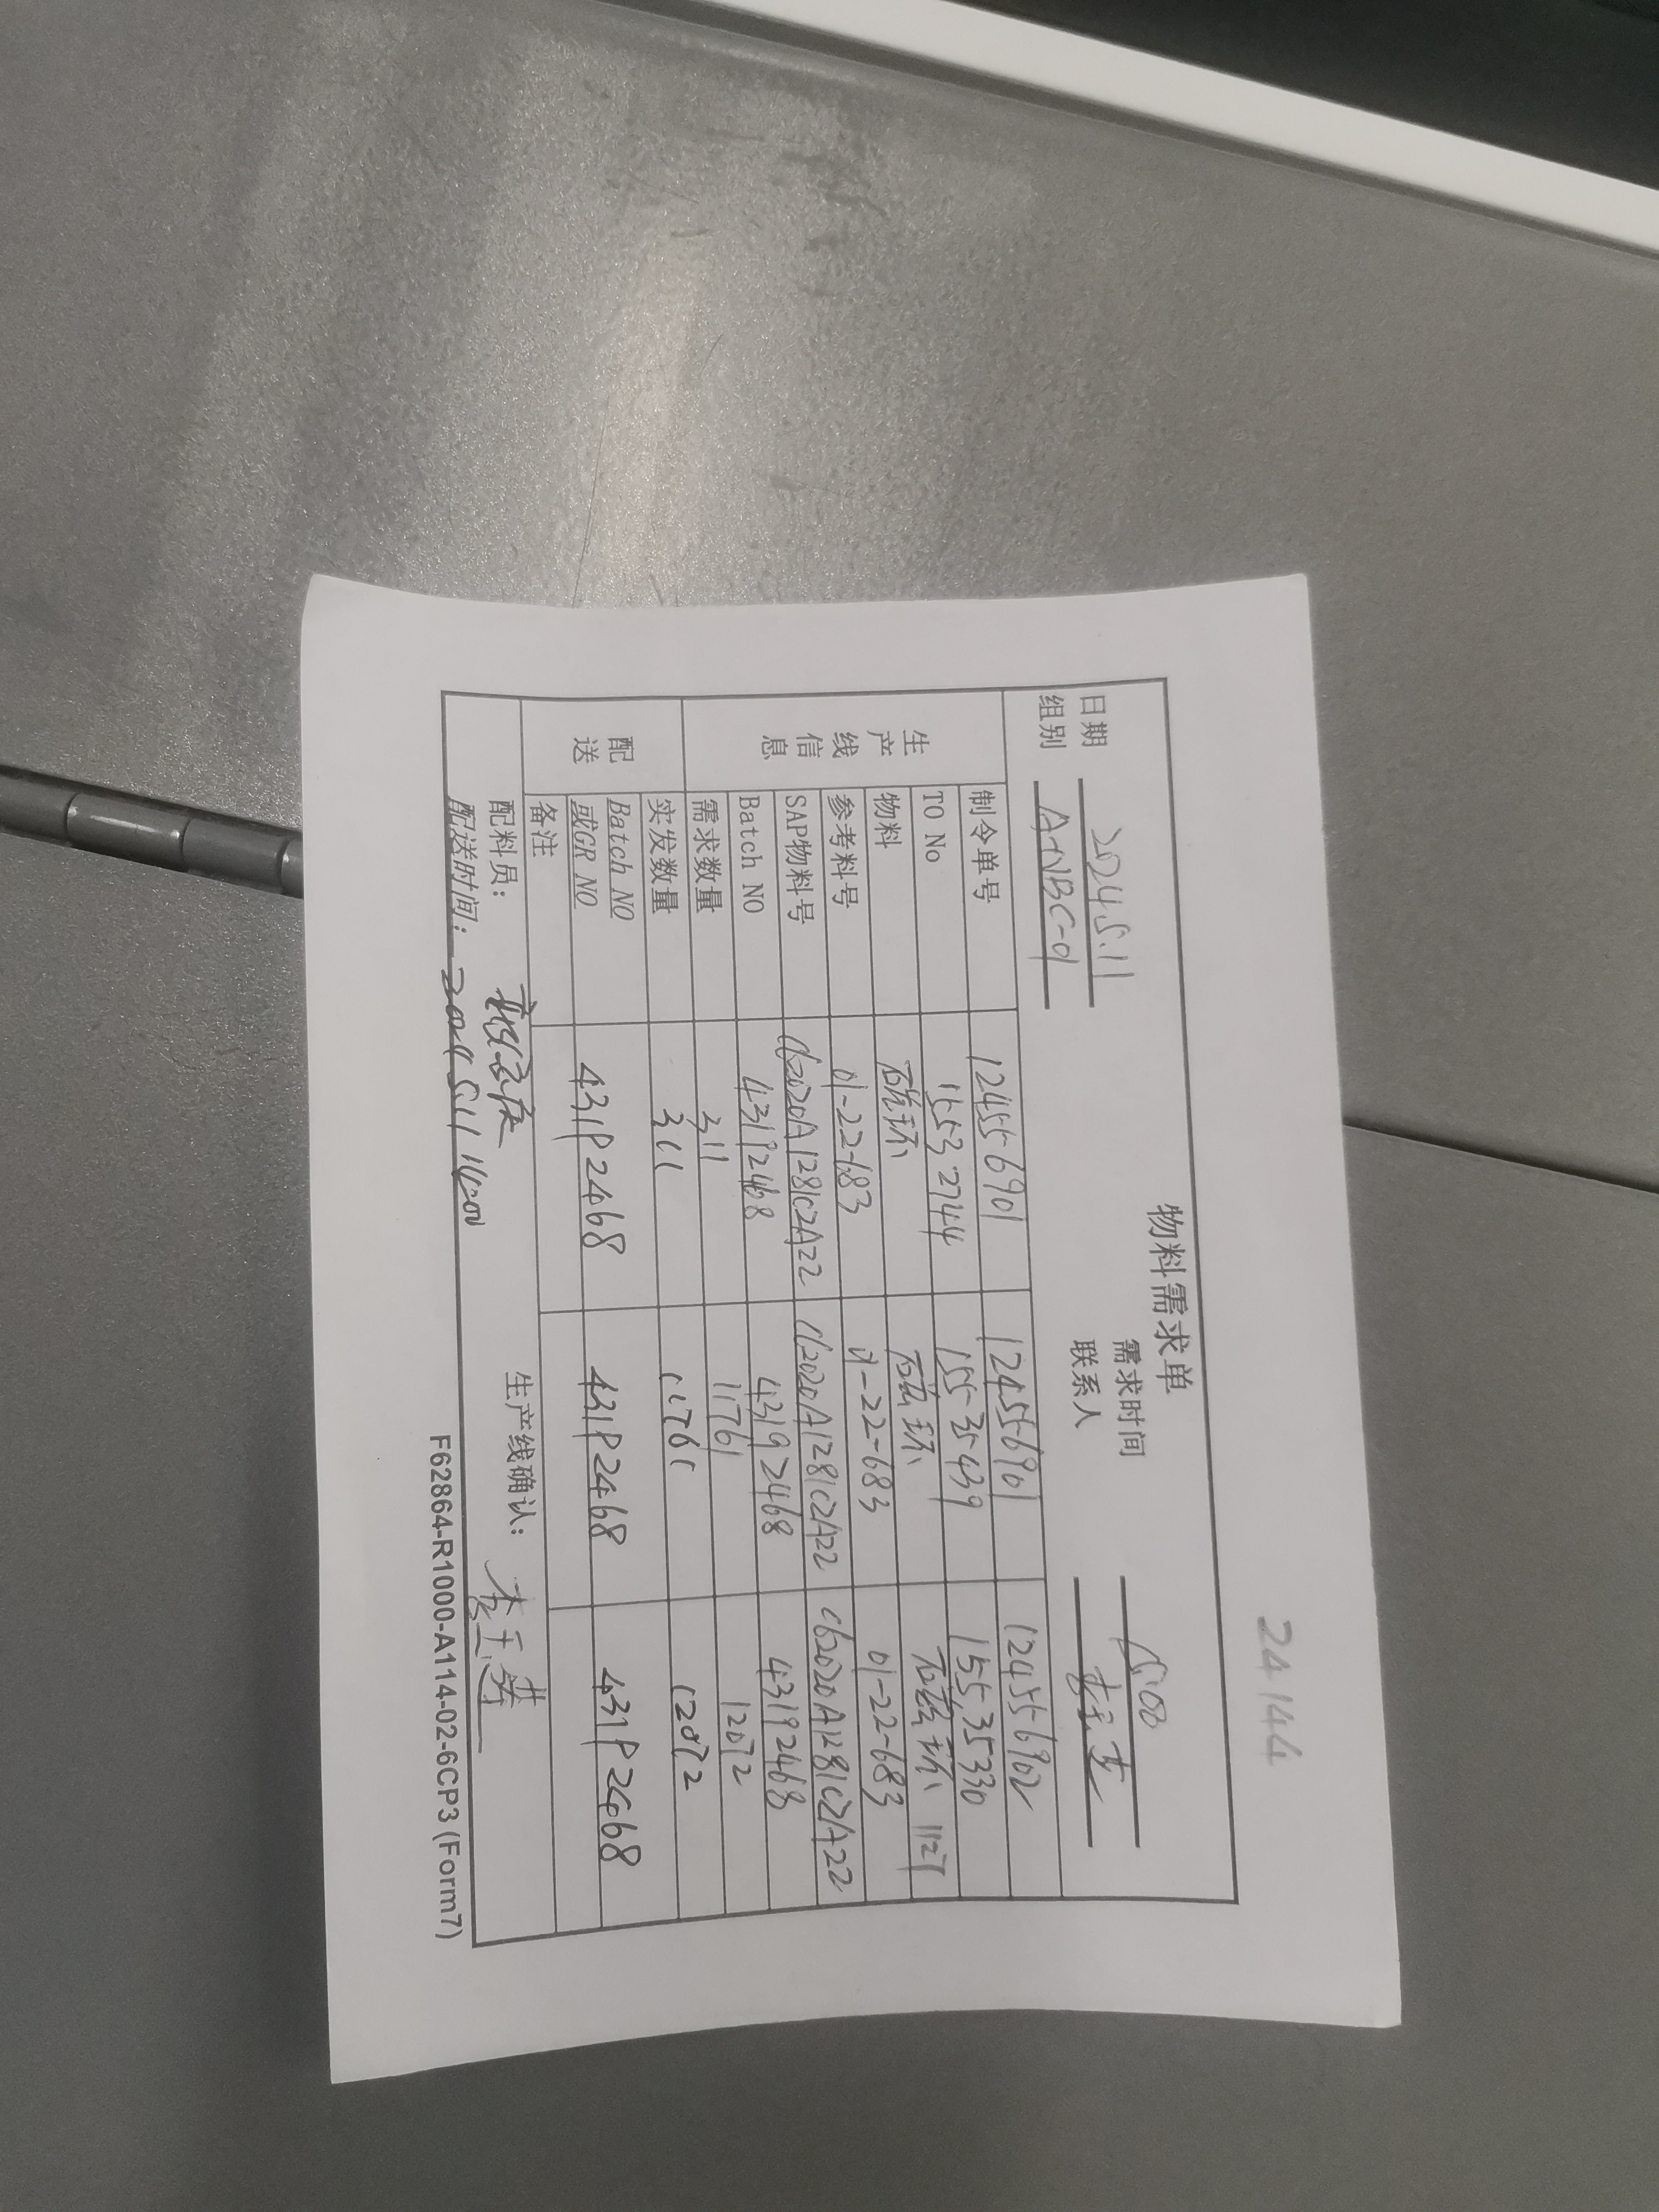 24144
物料需求单
日期 2024.5.11 需求时间
组别 A-NBC-01 联系人
生产线信息
制令单号 124556901 124556901 124556902
TO No 15532744 15535439 15535330
物料 磁环 磁环 磁环
参考料号 01-22-683 01-22-683 01-22-683
SAP物料号 cb2020A1281C2A22 cb2020A1281C2A22 cb2020A1281C2A22
Batch NO 431P2468 431P2468 431P2468
需求数量 311 11761 12072
配送
实发数量 311 11761 12072
Batch NO
或GR NO 431P2468 431P2468 431P2468
备注
配料员： 生产线确认：
配送时间：2024 5.11 14:00
F62864-R1000-A114-02-6CP3 (Form7)